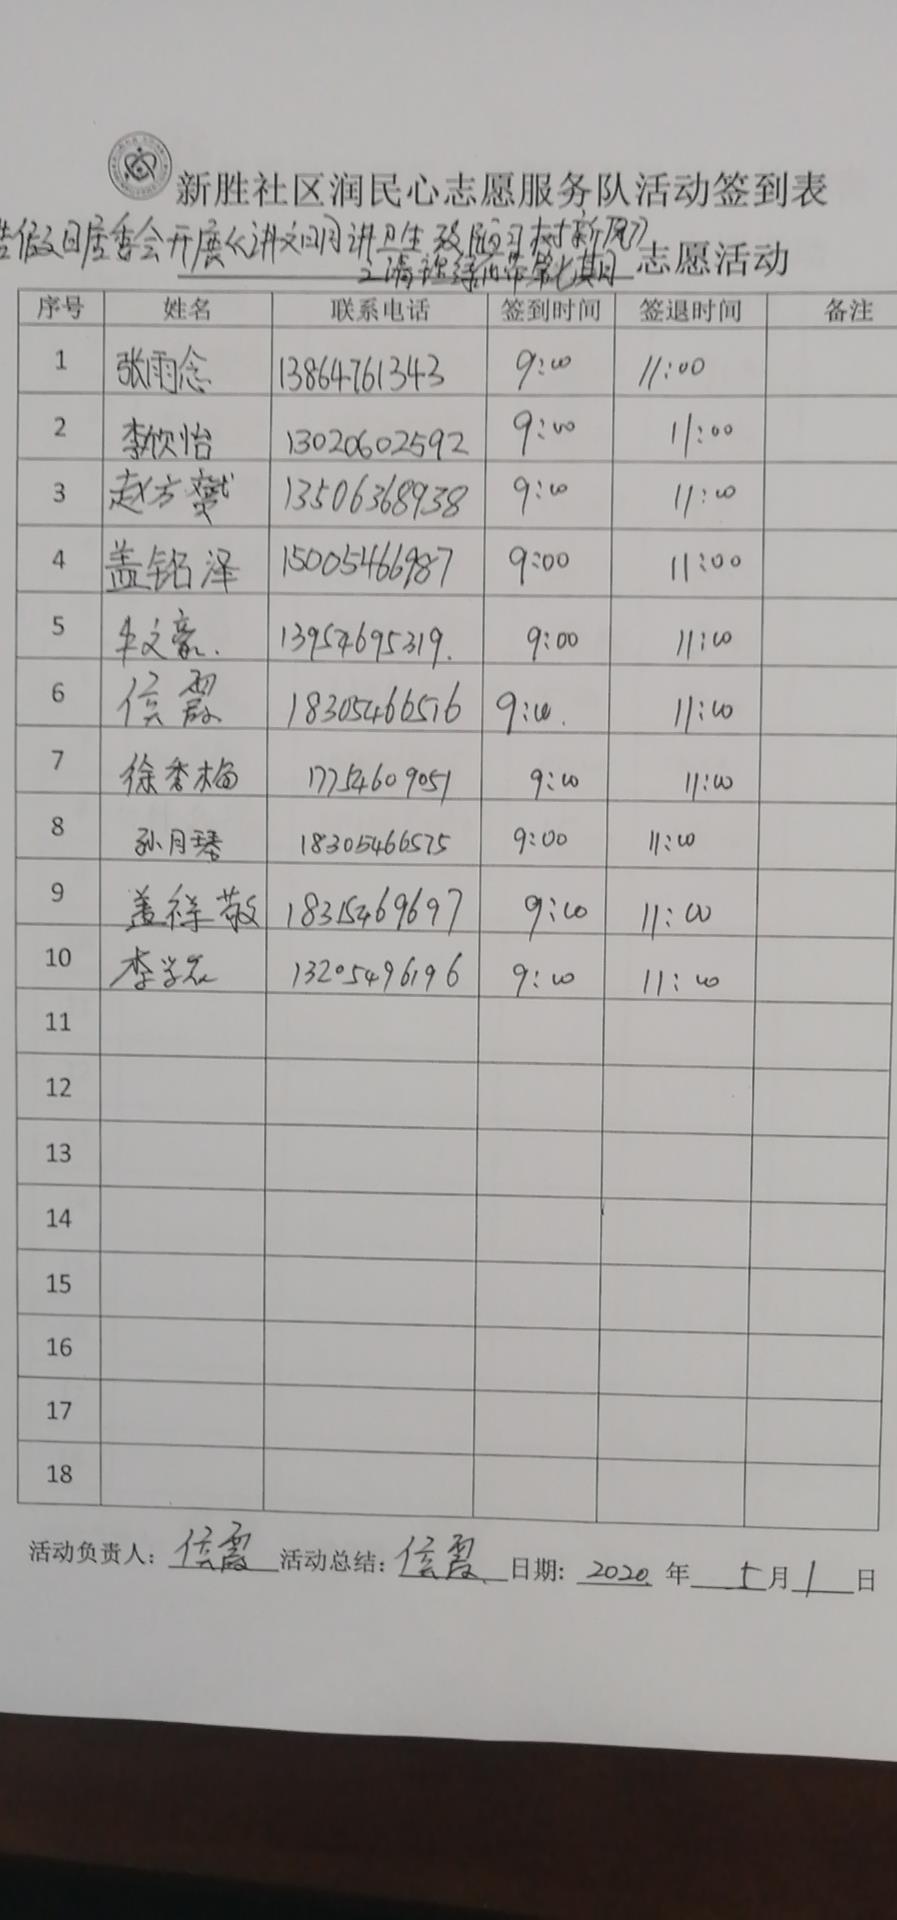 新胜社区润民心志愿服务队活动签到表
假日居委会开展《讲文明讲卫生 改陋习树新风》
志愿活动
序号 姓名 联系电话 签到时间 签退时间 备注
1 张雨念 13864761343 9:00 11:00
2 李欣怡 13020602592 9:00 11:00
3 赵方 13506368938 9:00 11:00
4 盖铭泽 15005466987 9:00 11:00
5 文豪 13954695319. 9:00 11:00
6 侯霞 18305466516 9:00. 11:00
7 徐香梅 17754609051 9:00 11:00
8 孙月琴 18305466575 9:00 11:00
9 盖祥敬 18315469697 9:00 11:00
10 李学 13205496196 9:00 11:00
11
12
13
14
15
16
17
18
活动负责人: 侯霞 活动总结: 侯霞 日期: 2020 年 5 月 1 日